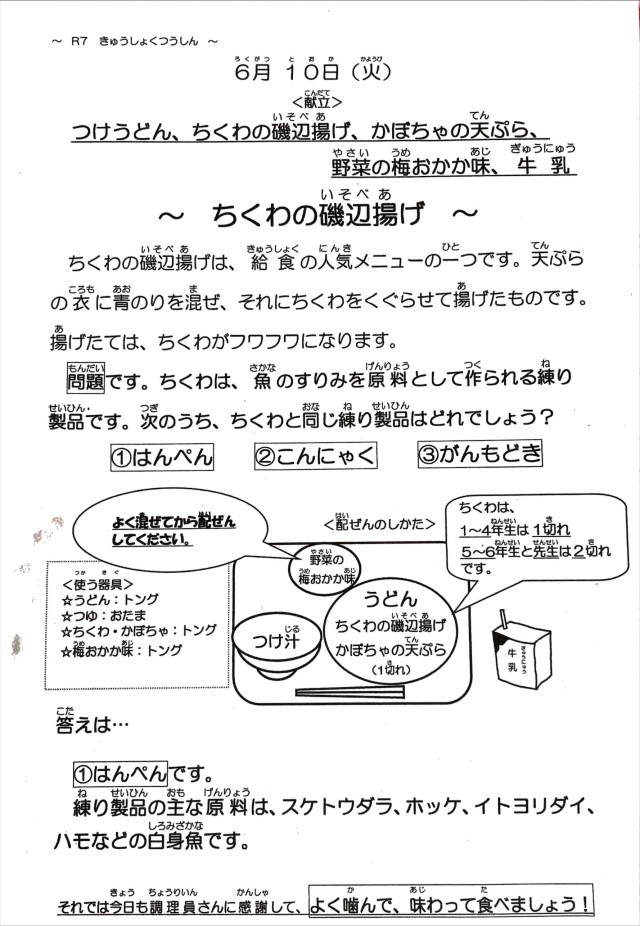 ～ R7 きゅうしょくつうしん ～
6月 10日（火）
＜献立＞
つけうどん、ちくわの磯辺揚げ、かぼちゃの天ぷら、
野菜の梅おかか味、牛乳
～ ちくわの磯辺揚げ ～
ちくわの磯辺揚げは、給食の人気メニューの一つです。天ぷら
の衣に青のりを混ぜ、それにちくわをくぐらせて揚げたものです。
揚げたては、ちくわがフワフワになります。
問題です。ちくわは、魚のすりみを原料として作られる練り
製品です。次のうち、ちくわと同じ練り製品はどれでしょう？
①はんぺん ②こんにゃく ③がんもどき
よく混ぜてから配ぜん
してください。
＜配ぜんのしかた＞
ちくわは、
1～4年生は1切れ
5～6年生と先生は2切れ
です。
＜使う器具＞
☆うどん：トング
☆つゆ：おたま
☆ちくわ・かぼちゃ：トング
☆梅おかか味：トング
野菜の
梅おかか味
つけ汁
うどん
ちくわの磯辺揚げ
かぼちゃの天ぷら
（1切れ）
牛乳
答えは…
①はんぺんです。
練り製品の主な原料は、スケトウダラ、ホッケ、イトヨリダイ、
ハモなどの白身魚です。
それでは今日も調理員さんに感謝して、よく噛んで、味わって食べましょう！